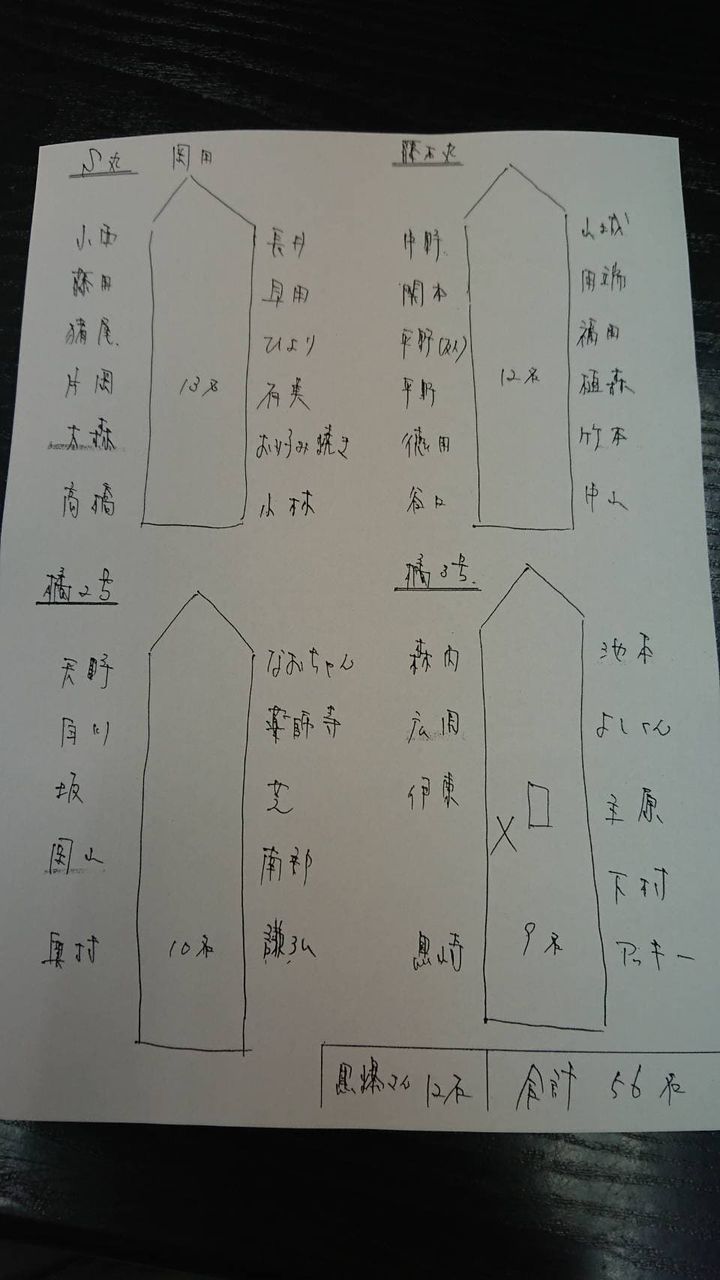 S丸 岡田
小西
藤田
猪尾
片岡
大森
高橋
13名
長井
早田
ひより
石実
お好み焼き
小林
藤本丸
中野
関本
平野(文人)
平野
徳田
谷口
12名
山城
田端
福田
植森
竹本
中山
橘2号
天野
角川
坂
岡山
奥村
10名
なおちゃん
薬師寺
芝
南部
謙弘
橘3号
森内
広岡
伊東
黒崎
9名
池本
よしくん
主原
下村
アッキー
12名
合計 56名